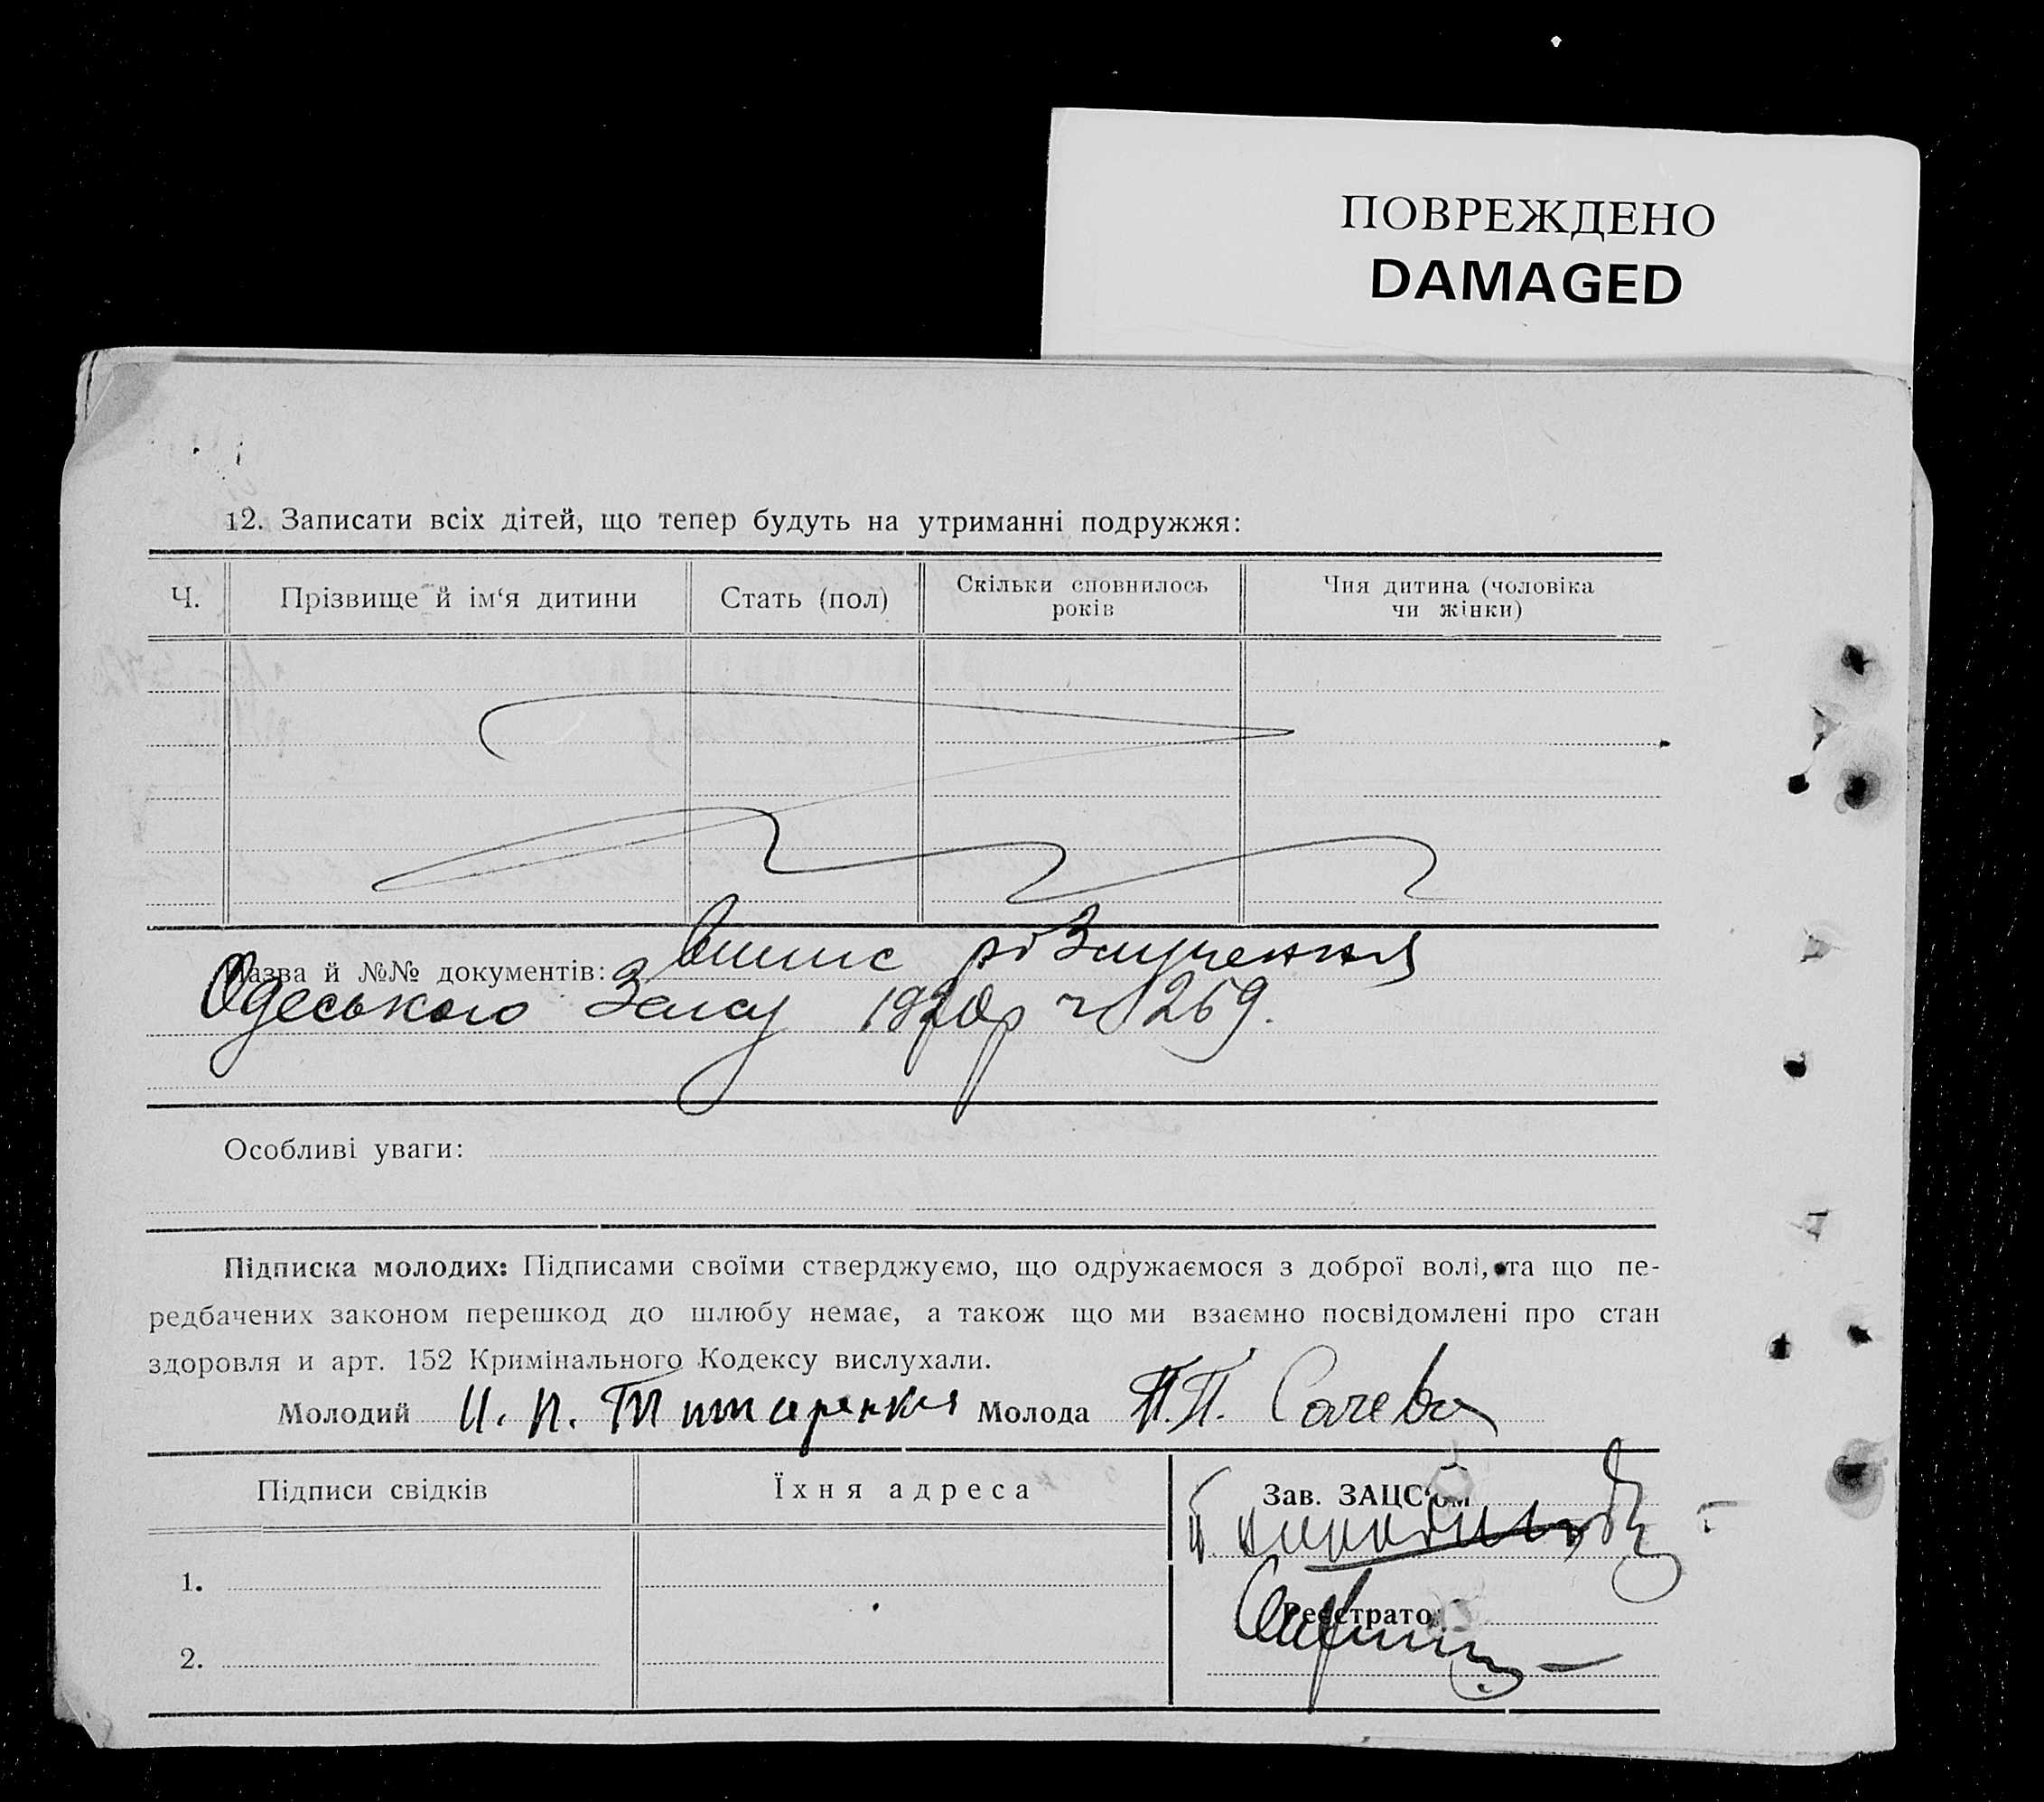 ПОВРЕЖДЕНО
DAMAGED
12. Записати всіх дітей, що тепер будуть на утриманні подружжя:
Ч. Прізвище й ім‘я дитини Стать (пол) Скільки сповнилось років Чия дитина (чоловіка чи жінки)
Назва й №№ документів:
Одеського Загсу 269.
Особливі уваги:
Підписка молодих: Підписами своїми стверджуємо, що одружаємося з доброї волі, та що пе-
редбачених законом перешкод до шлюбу немає, а також що ми взаємно посвідомлені про стан
здоровля и арт. 152 Кримінального Кодексу вислухали.
Молодий И. П. Титаренко Молода П.П. Сачева
Підписи свідків Їхня адреса Зав. ЗАЦС‘ом
1.
Реєстрато
2.